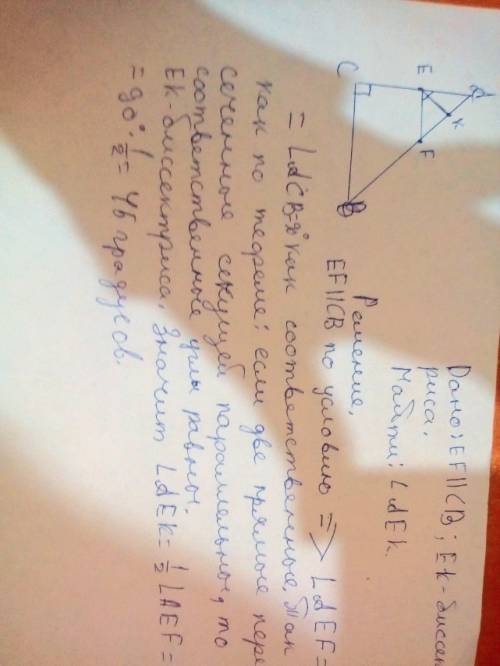 Дано: EF||CB; EK-биссек
риса.
Найти: ∠AEK.
A
K
E
F
C
B
Решение.
EF||CB по условию => ∠AEF =
= ∠ACB=90° как соответственные. Так
как по теореме: если две прямые пере
сеченные секущей параллельны, то
соответственные углы равны.
EK-биссектриса, значит ∠AEK= 1/2 ∠AEF =
= 90°·1/2 = 45 градусов.